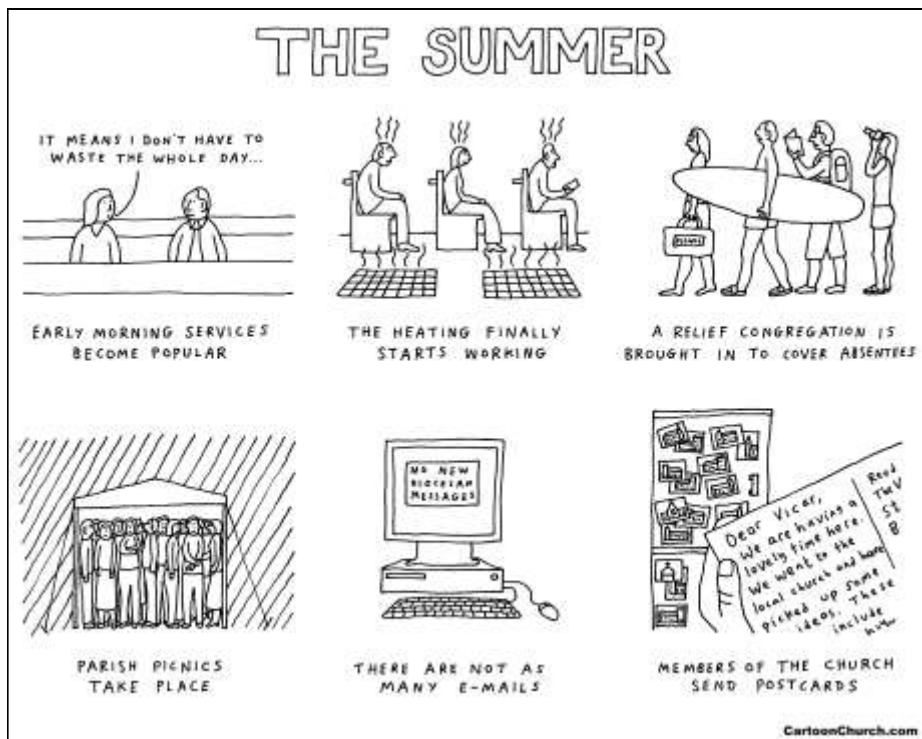 THE SUMMER
IT MEANS I DON'T HAVE TO
WASTE THE WHOLE DAY...
EARLY MORNING SERVICES
BECOME POPULAR
THE HEATING FINALLY
STARTS WORKING
A RELIEF CONGREGATION IS
BROUGHT IN TO COVER ABSENTEES
PARISH PICNICS
TAKE PLACE
NO NEW
DIOCESAN
MESSAGES
THERE ARE NOT AS
MANY E-MAILS
Dear Vicar,
We are having a
lovely time here.
We went to the
local church and have
picked up some
ideas. These
include
MEMBERS OF THE CHURCH
SEND POSTCARDS
CartoonChurch.com